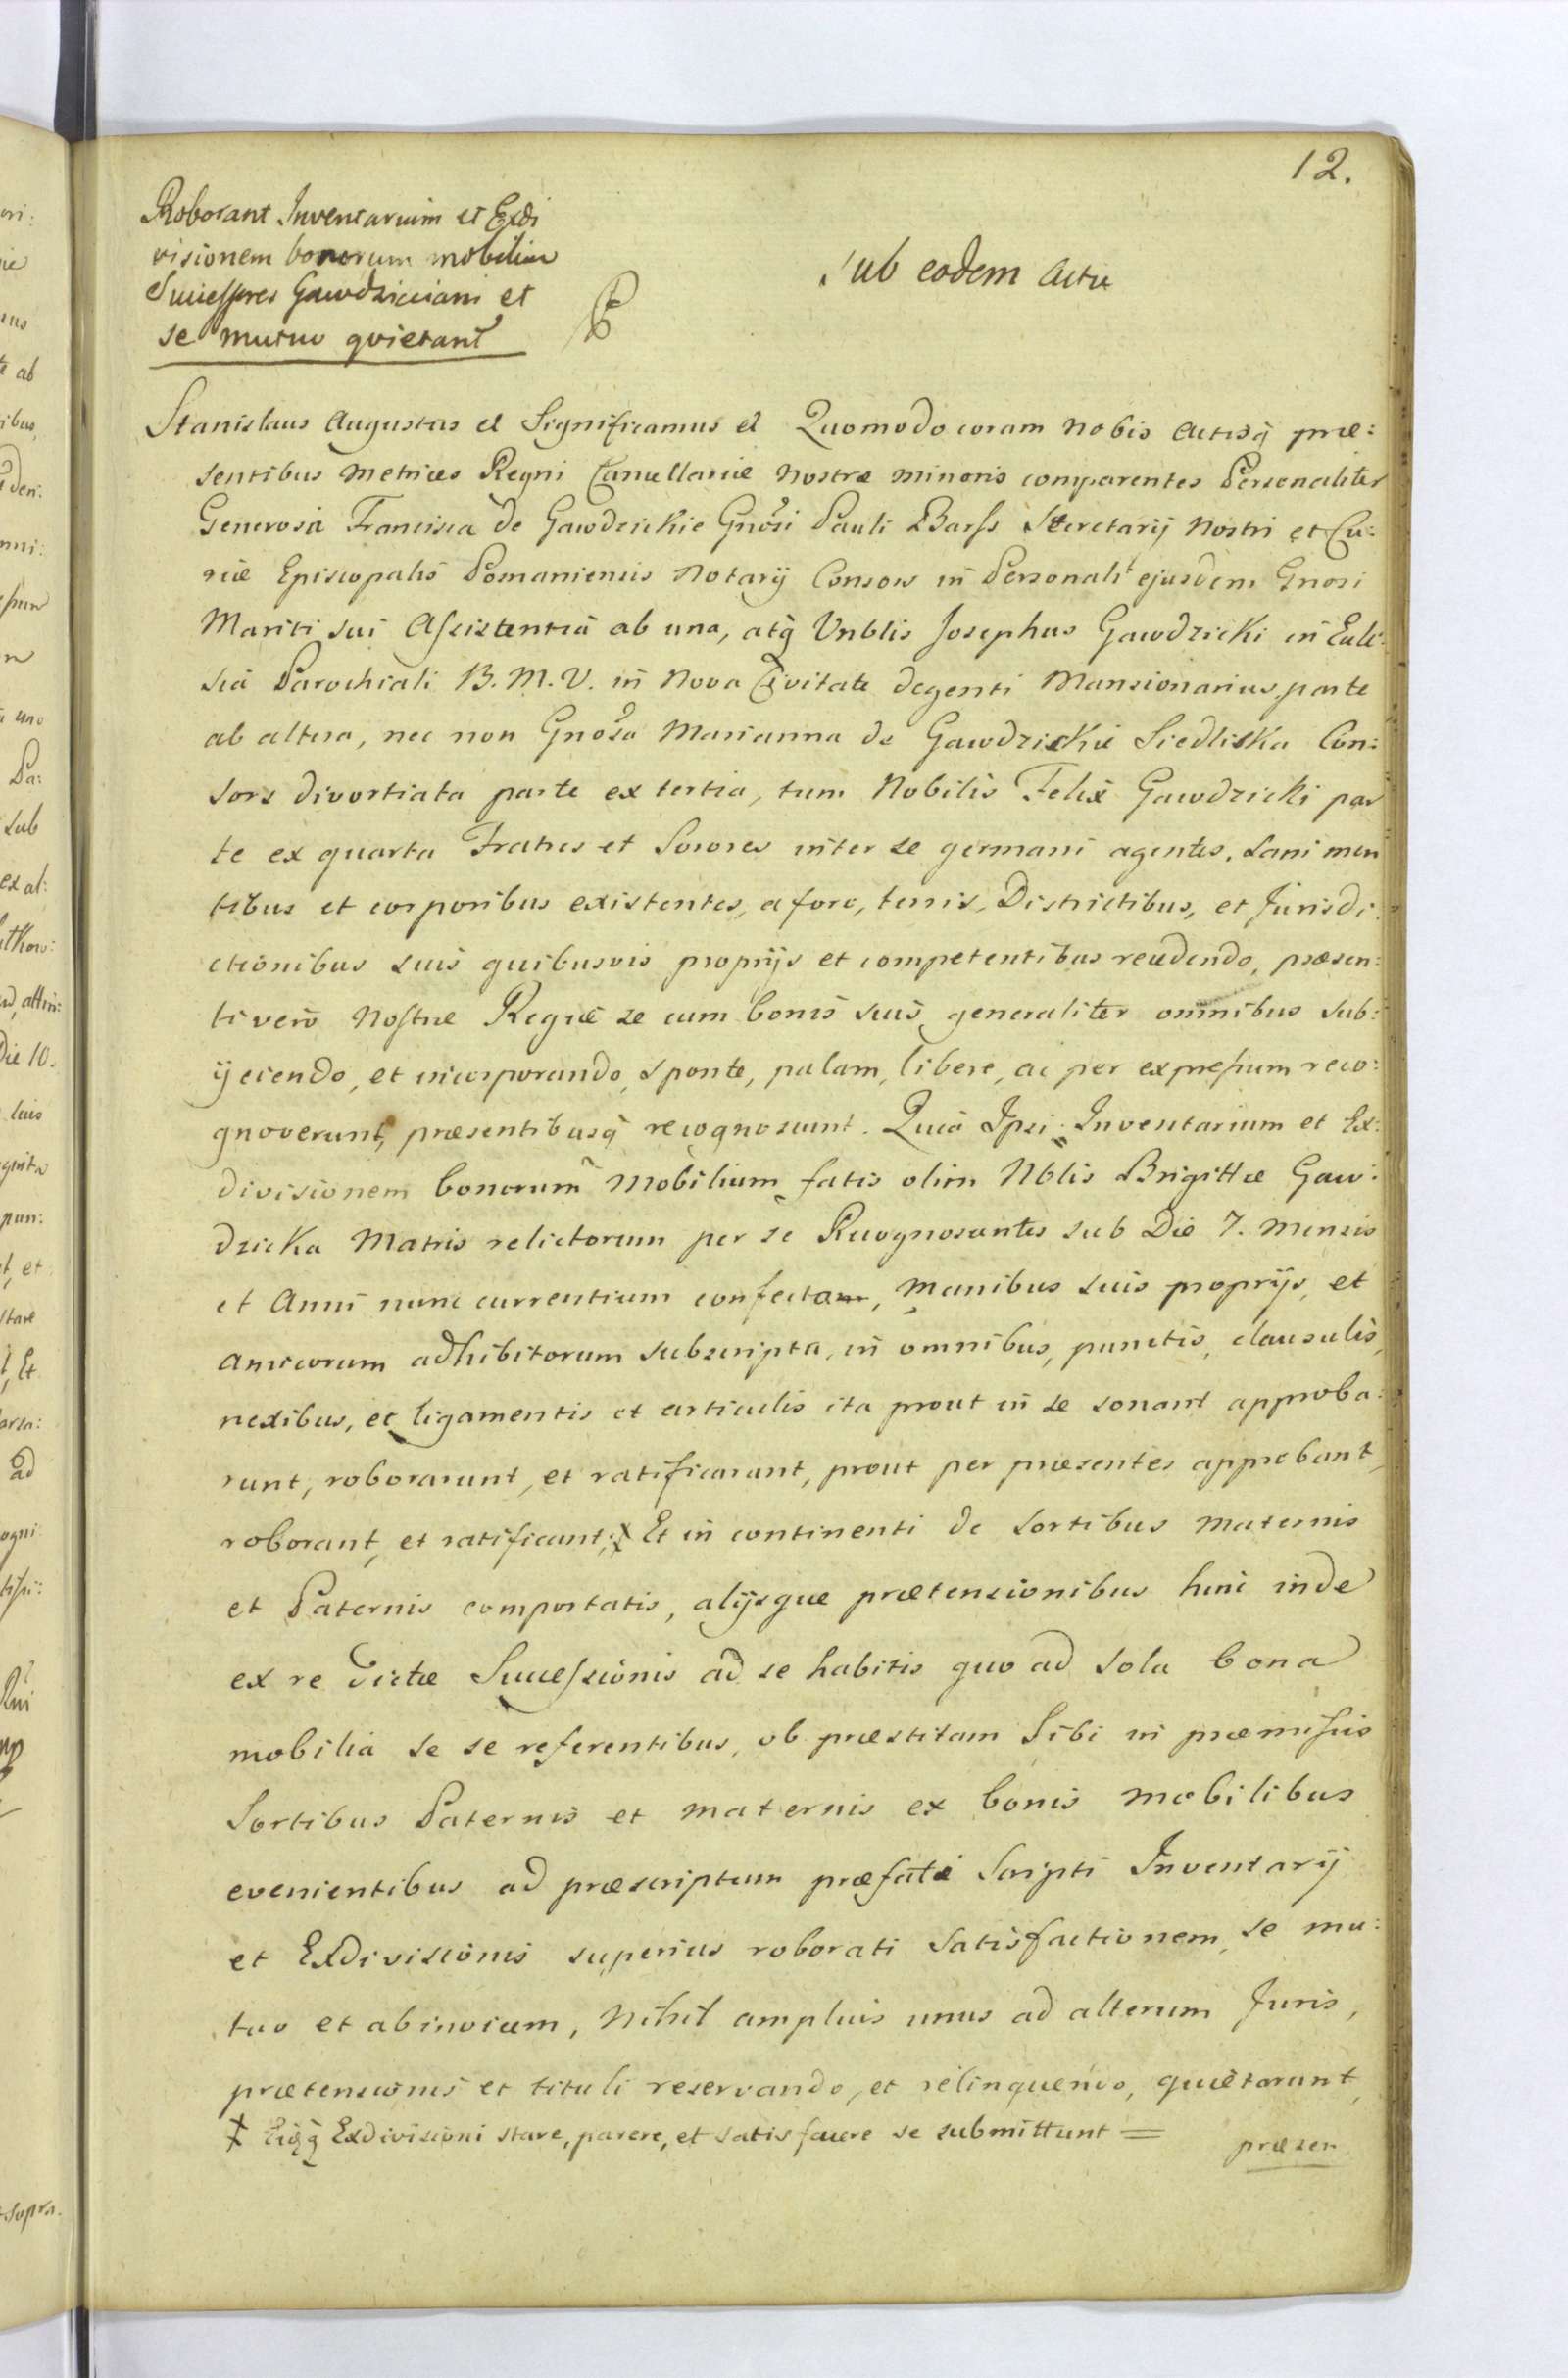 12.
Roborant Inventarium et Exdi
visionem bonorum mobilium
Successores Gawdzicciani et
se mutuo quietant
Sub eodem Actu
Stanislaus Augustus et Significamus et Quomodo coram nobis Actisq̃ præ:
sentibus Metrices Regni Cancellariæ Nostræ minoris comparentes Personaliter
Generosa Francisca de Gawdzickie Gnosi Pauli Barss Secretarij Nostri et Cu:
riæ Episcopalis Posnaniensis Notarij Consors in Personali ejusdem Gnosi
Mariti sui Assistentia ab una, atq̃ Vnblis Josephus Gawdzicki in Eccle:
sia Parochiali B. M. V. in Nova Civitate degenti Mansionarius parte
ab altera, nec non Gnosa Marianna de Gawdzickie Siedliska Con:
sors divortiata parte ex tertia, tum Nobilis Felix Gawdzicki par
te ex quarta Fratres et Sorores inter se germani agentes, sani men
tibus et corporibus existentes, a foro, terris, Districtibus, et Jurisdi:
ctionibus suis quibusvis proprijs et competentibus recedendo, præsen:
ti vero Nostræ Regiæ se cum bonis suis generaliter omnibus sub:
ijciendo, et incorporando, sponte, palam, libere, ac per expressum reco:
gnoverunt, præsentibusq̃ recognoscunt. Quia Ipsi Inventarium et Ex:
divisionem bonorum Mobilium fatis olim Nblis Brigittæ Gaw:
dzicka Matris relictorum per se Recognoscentes sub Die 7. Mensis
et Anni nunc currentium confecta, Manibus suis proprijs, et
Amicorum adhibitorum subscripta, in omnibus, punctis, clausulis,
nexibus, et ligamentis et articulis ita prout in se sonant approba:
runt, roborarunt, et ratificarunt, prout per præsentes approbant,
roborant, et ratificant; Et in continenti de sortibus maternis
et Paternis comportatis, alijsque prætensionibus hinc inde
ex re dictæ Successionis ad se habitis quo ad sola bona
mobilia se se referentibus, ob præstitam Sibi in præmissis
Sortibus Paternis et maternis ex bonis mobilibus
evenientibus ad præscriptum præfati Scripti Inventarij
et Exdivisionis superius roborati satisfactionem, se mu:
tuo et abinvicem, Nihil amplius unus ad alterum Juris,
prætensionis et tituli reservando, et relinquendo, quietarunt,
Exdivisioni stare, parere, et satisfacere se submittunt =
præsen